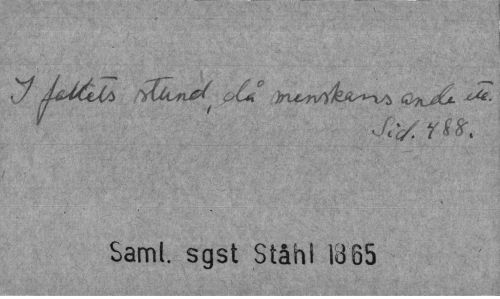 I fallets stund, då menskans ande etc.
Sid. 488.
Saml. sgst Ståhl 1865